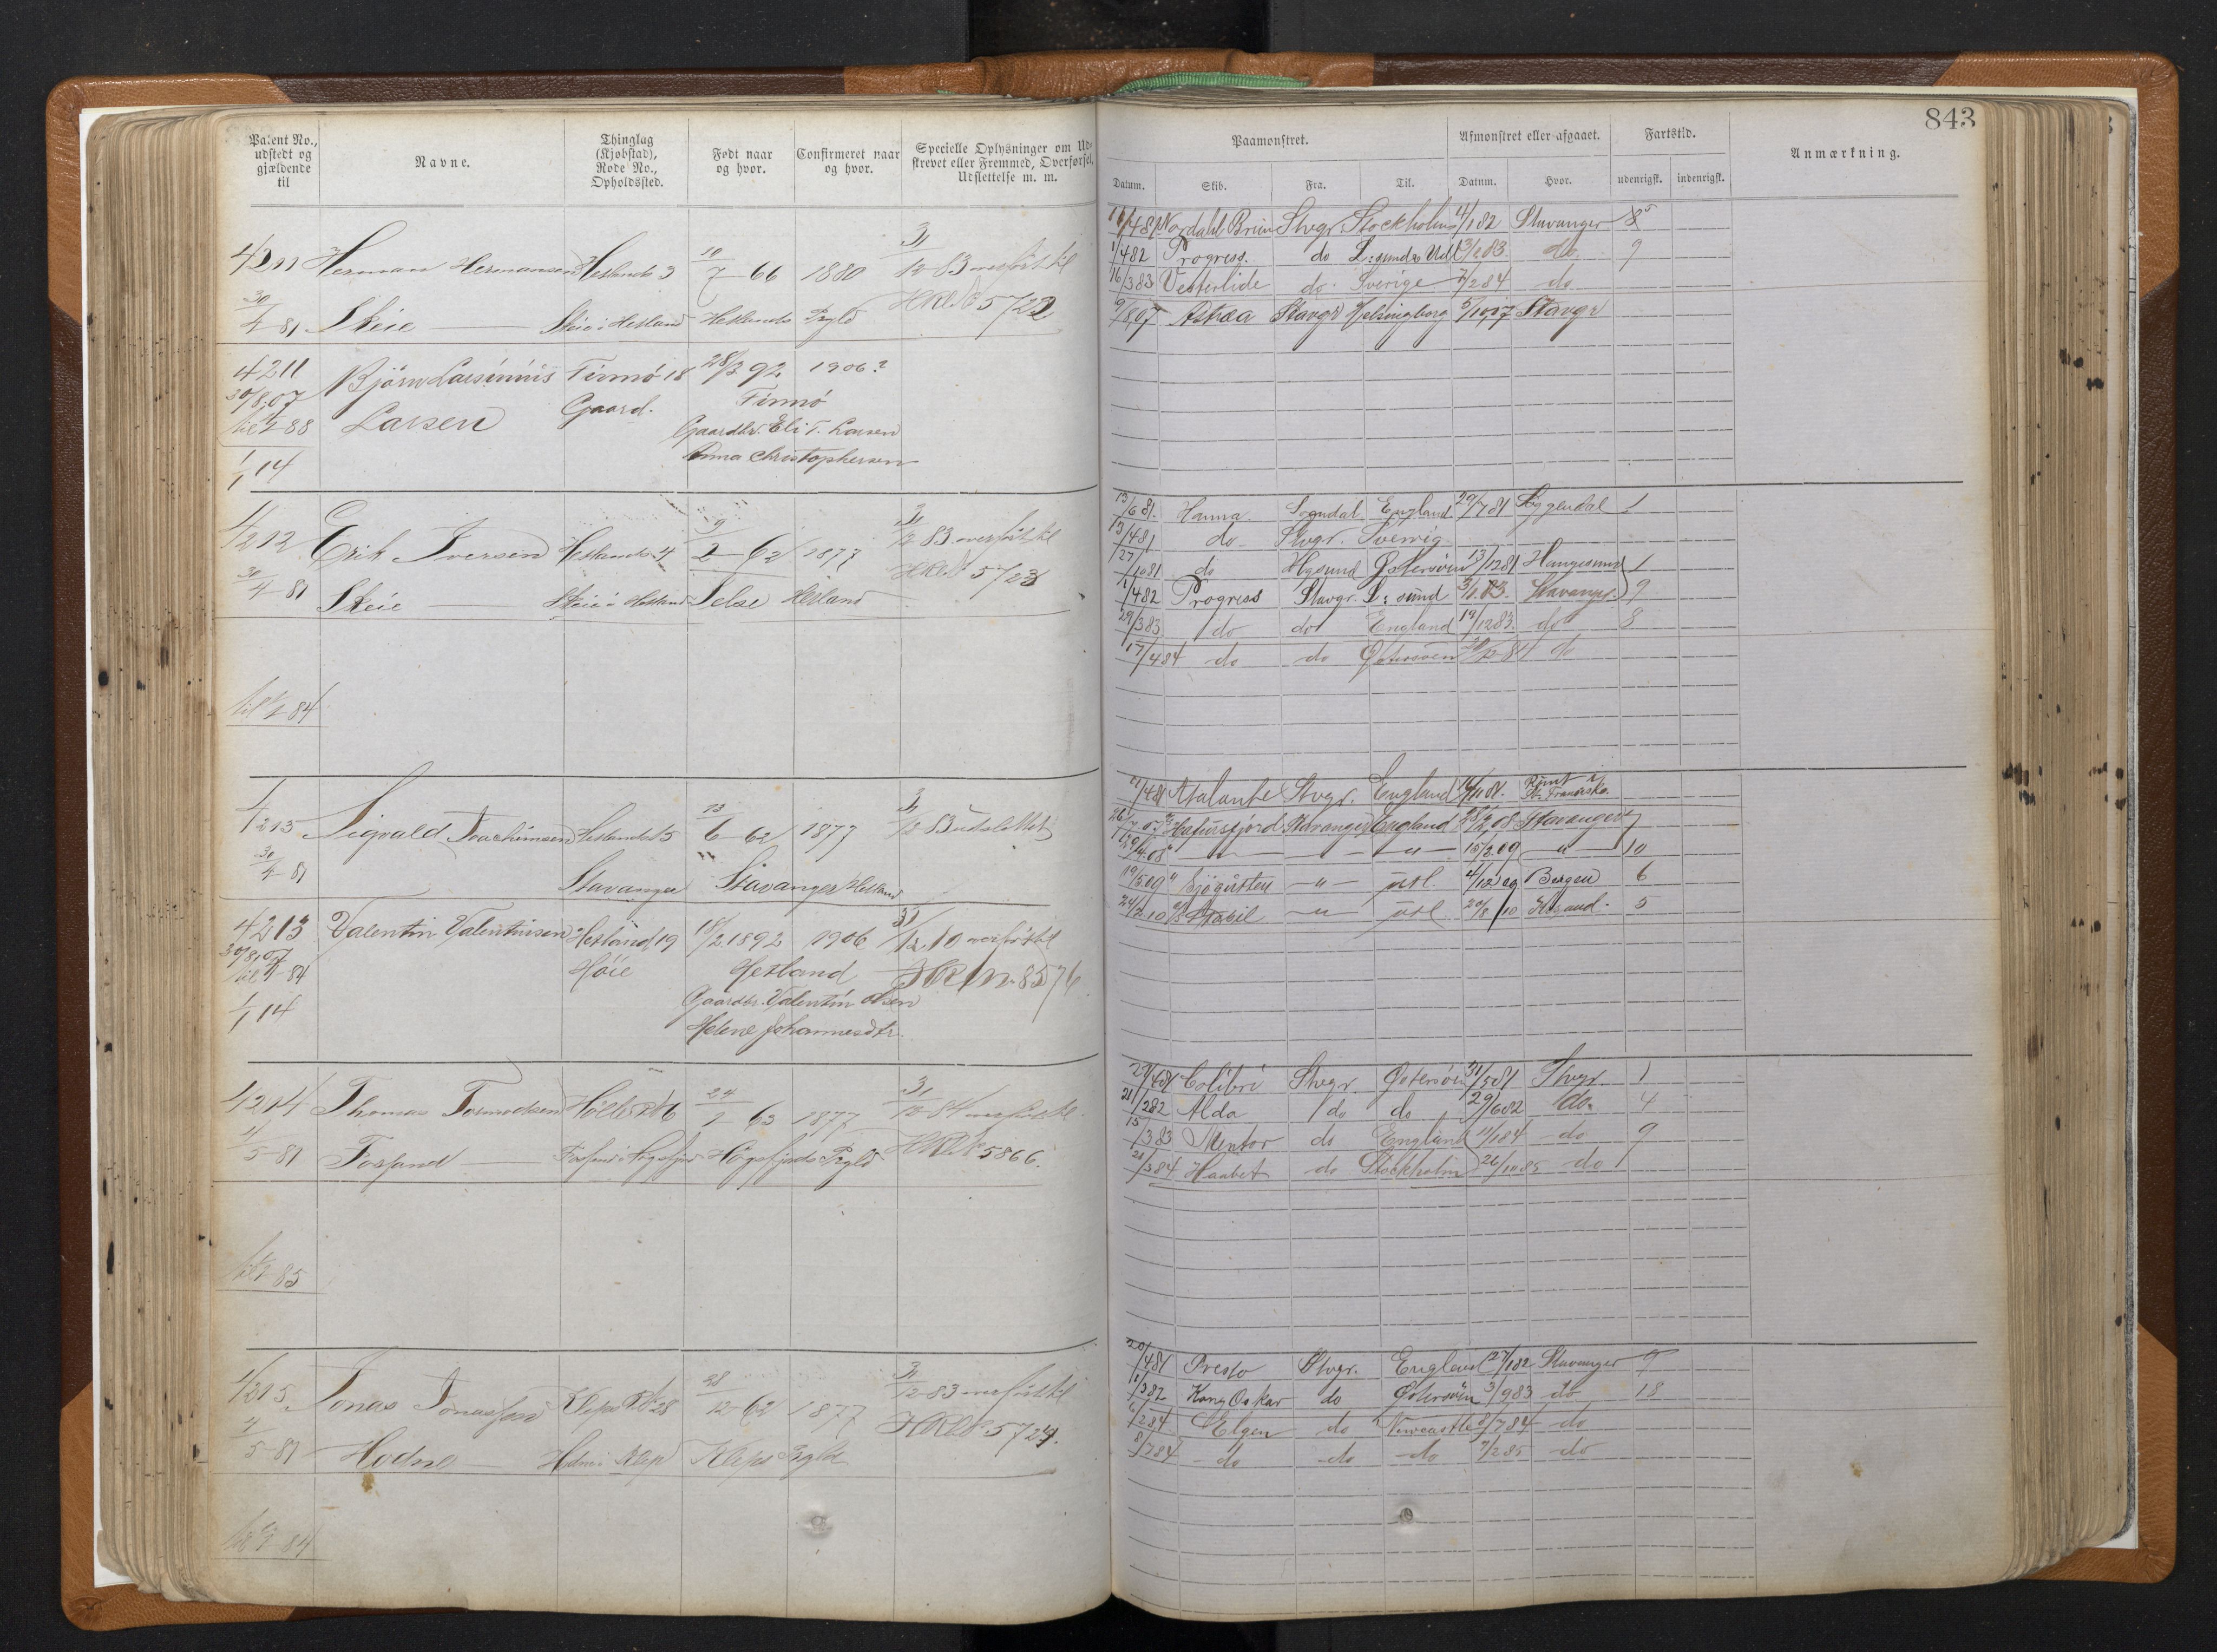 843
Patent No., udstedt og gjældende til
Navne.
Thinglag (Kjøbstad), Rode No., Opholdssted.
Født naar og hvor.
Confirmeret naar og hvor.
Specielle Oplysninger om Udskrevet eller Fremmed, Overførsel, Udslettelse m. m.
Paamønstret.
Afmønstret eller afgaaet.
Fartstid.
Anmærkning.
Datum. Skib. Fra. Til. Datum. Hvor. udenrigsk. indenrigsk.
4211 Herman Hermansen Hetlands 3 10/7 66 1880 31/12 83 overført til
30/4 81 Skeie Skeie i Hetland Hetlands Prgld HRL No 5722
11/4 81 Nordahl Brun Stvgr Stockholm 4/1 82 Stavanger 8
1/4 82 Progress. do 3/1 83 do 9
16/3 83 Vesterlide do Sverige 7/2 84 do
9/8 07 Astræa Stavgr Helsingborg 5/10 07 Stavgr
4211 Bjørn Lausinius Finnø 18 28/3 92 1906?
30/8.07 Larsen Gaard. Finnø
til 1/1 88 Gaardbr. Eli T. Larsen
1/1 14 Anna Christophersen
4212 Erik Iversen Hetlands 4 9/2 62 1877 31/12 83 overført til
30/4 81 Skeie Skeie i Hetland Hetland HRL No 5723
til 1/1 84
13/6 81. Hanna Sogndal England 29/7 81 1
13/4 81 do Stvgr.
27/10 81 do Østersøen 13/12 81 Haugesund 1
1/4 82 Progress Stavgr. L: sund 3/1 83. Stavanger 9
29/3 83 do do England 19/12 83. do 8
17/4 84 do do Østersøen do
4213 Sigvald Joachimsen Hetlands 5 13/6 62 1877 31/12 83 udslettet
30/4 81 Stavanger Stavanger Hetland
Atalante Stvgr. England Rømt i St. Francisko.
Hafursfjord Stavanger England 28/2 08 Stavanger 7
29/4.08 — " — — " — — " — 15/2 09 — " — 10
19/5 09 Sjøgutten — " — utl. 4/12 09 Bergen 6
24/2 10 — " — utl 20/8 10 5
4213 Valentin Valentinsen Hetland 19 18/2 1892 1906 31/12.10 overført til
30/8.07 Høie Hetland HRL No 8576
til 1/1 84 Gaardbr. Valentin Olsen
1/1 14 Helene Johannesdtr.
4214 Thomas Tormodsen 24/1 63 1877 31/12 84 overført til
1/5 81 Fossand Høgsfjords Prgld HRL No 5866.
til 1/1 85
Colibri Stvgr. Østersøen 31/5 81 Stvgr. 1
21/2 82 Alda do do 29/6 82 do. 4
15/3 83 Mentor do England 11/1 84 do 9
21/3 84 Haabet do Stockholm 26/10 85 do
4215 Jonas Jonassen Kleps 28 28/12 62 1877 31/12 83 overført til
4/5 81 Hodne Hodne i Klep Kleps Prgld HRL No 5724.
til 1/1 84
20/4 81 Presto Stvgr. England 27/1 82 Stavanger 9
1/3 82 Kong Oskar do Østersøen 3/9 83 do 18
6/2 84 Elgen do Newcastle 8/7 84 do
8/7 84 do do do 7/2 85 do